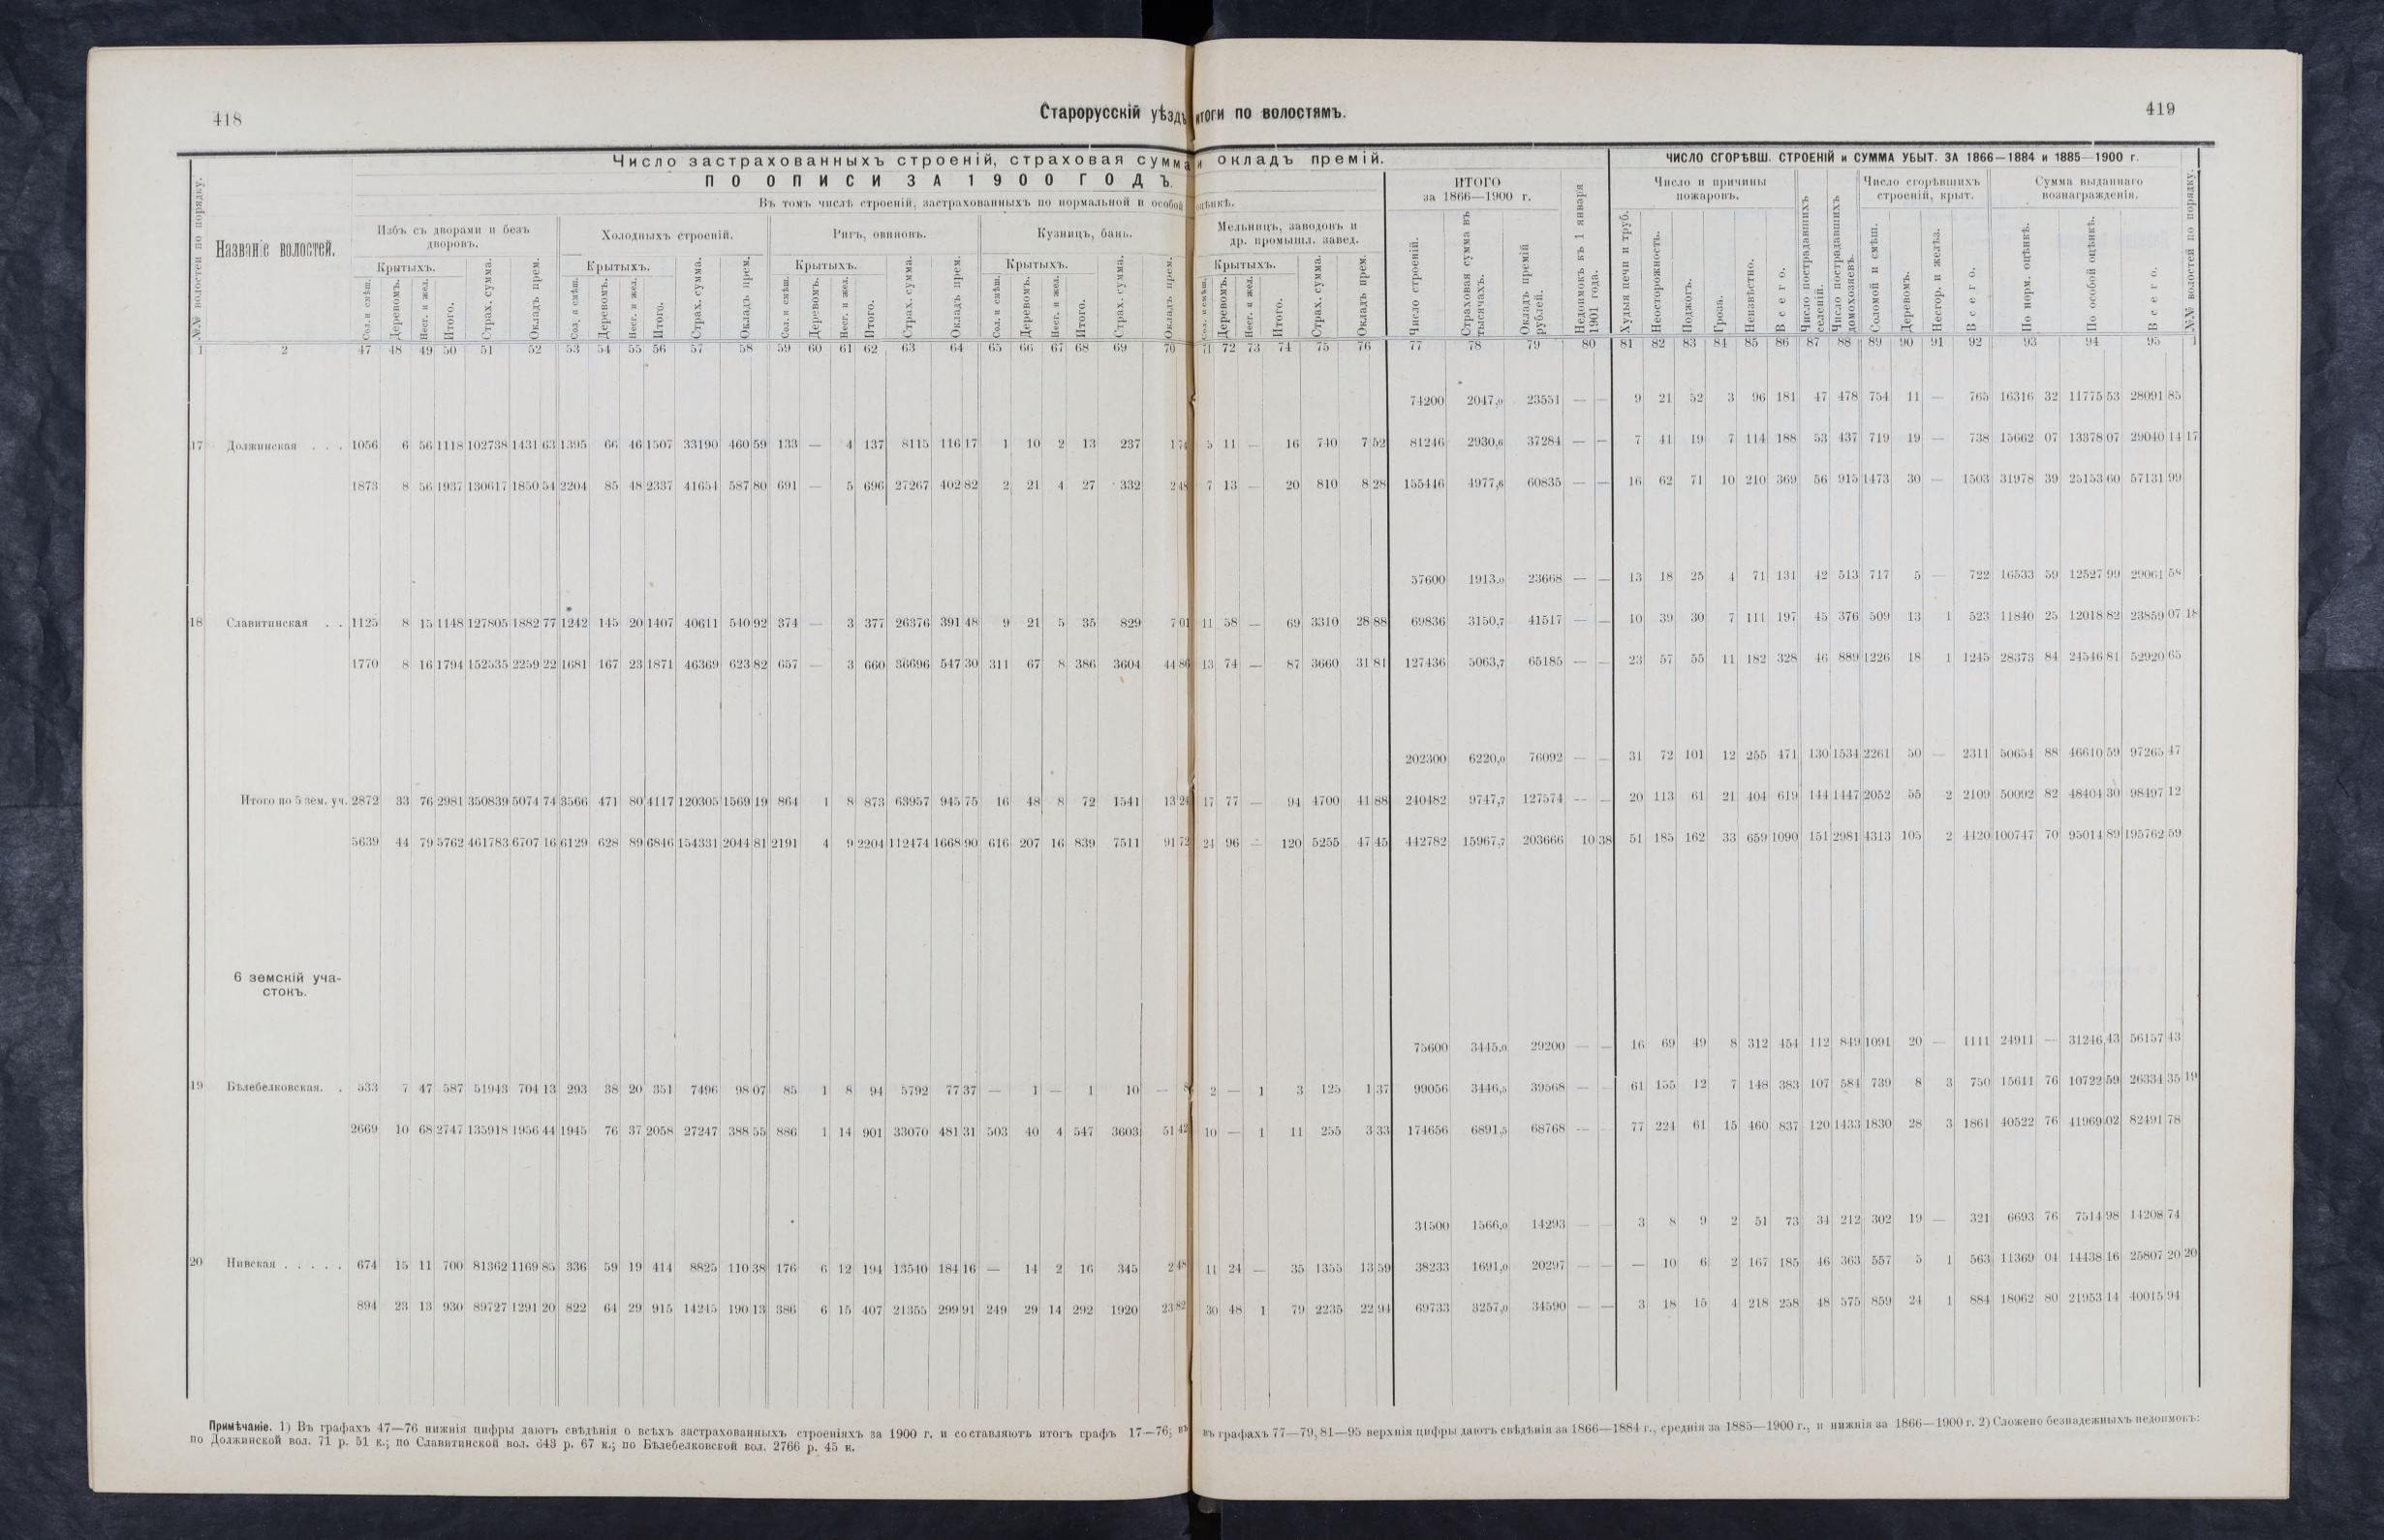 418
Старорусскій уѣздъ итоги по волостямъ.
419
Число застрахованныхъ строеній, страховая сумма и окладъ премій.
ЧИСЛО СГОРѢВШ. СТРОЕНІЙ и СУММА УБЫТ. ЗА 1866—1884 и 1885—1900 г.
ПО ОПИСИ ЗА 1900 ГОДЪ.
Въ томъ числѣ строеній, застрахованныхъ по нормальной и особой оцѣнкѣ.
ИТОГО за 1866—1900 г.
Число и причины пожаровъ.
Число сгорѣвшихъ строеній, крыт.
Сумма выданнаго вознагражденія.
№№ волостей по порядку.
Названіе волостей.
Избъ съ дворами и безъ дворовъ.
Холодныхъ строеній.
Ригъ, овиновъ.
Кузницъ, бань.
Мельницъ, заводовъ и др. промышл. завед.
Крытыхъ. Крытыхъ. Крытыхъ. Крытыхъ. Крытыхъ.
Сол. и смѣш. Деревомъ. Несг. и жел. Итого. Страх. сумма. Окладъ прем.
Сол. и смѣш. Деревомъ. Несг. и жел. Итого. Страх. сумма. Окладъ прем.
Сол. и смѣш. Деревомъ. Несг. и жел. Итого. Страх. сумма. Окладъ прем.
Сол. и смѣш. Деревомъ. Несг. и жел. Итого. Страх. сумма. Окладъ прем.
Сол. и смѣш. Деревомъ. Несг. и жел. Итого. Страх. сумма. Окладъ прем.
Число строеній. Страховая сумма въ тысячахъ. Окладъ премій рублей. Недоимокъ къ 1 января 1901 года.
Худыя печи и труб. Неосторожность. Поджогъ. Гроза. Неизвѣстно. Всего. Число пострадавшихъ селеній. Число пострадавшихъ домохозяевъ. Соломой и смѣш. Деревомъ. Несгор. и желѣз. Всего. По норм. оцѣнкѣ. По особой оцѣнкѣ. Всего. №№ волостей по порядку.
1 2 47 48 49 50 51 52 53 54 55 56 57 58 59 60 61 62 63 64 65 66 67 68 69 70 71 72 73 74 75 76 77 78 79 80 81 82 83 84 85 86 87 88 89 90 91 92 93 94 95 1
74200 2047,0 23551 — — 9 21 52 3 96 181 47 478 754 11 — 765 16316 32 11775 53 28091 85
17 Должинская . . . 1056 6 56 1118 102738 1431 63 1395 66 46 1507 33190 460 59 133 — 4 137 8115 116 17 1 10 2 13 237 1 74 5 11 — 16 740 7 52 81246 2930,6 37284 — — 7 41 19 7 114 188 53 437 719 19 — 738 15662 07 13378 07 29040 14 17
1873 8 56 1937 130617 1850 54 2204 85 48 2337 41654 587 80 691 — 5 696 27267 402 82 2 21 4 27 332 2 48 7 13 — 20 810 8 28 155446 4977,6 60835 — — 16 62 71 10 210 369 56 915 1473 30 — 1503 31978 39 25153 60 57131 99
57600 1913,0 23668 — — 13 18 25 4 71 131 42 513 717 5 — 722 16533 59 12527 99 29061 58
18 Славитинская . . 1125 8 15 1148 127805 1882 77 1242 145 20 1407 40611 540 92 374 — 3 377 26376 391 48 9 21 5 35 829 7 01 11 58 — 69 3310 28 88 69836 3150,7 41517 — — 10 39 30 7 111 197 45 376 509 13 1 523 11840 25 12018 82 23859 07 18
1770 8 16 1794 152535 2259 22 1681 167 23 1871 46369 623 82 657 — 3 660 36696 547 30 311 67 8 386 3604 44 86 13 74 — 87 3660 31 81 127436 5063,7 65185 — — 23 57 55 11 182 328 46 889 1226 18 1 1245 28373 84 24546 81 52920 65
202300 6220,0 76092 — — 31 72 101 12 255 471 130 1534 2261 50 — 2311 50654 88 46610 59 97265 47
Итого по 5 зем. уч. 2872 33 76 2981 350839 5074 74 3566 471 80 4117 120305 1569 19 864 1 8 873 63957 945 75 16 48 8 72 1541 13 24 17 77 — 94 4700 41 88 240482 9747,7 127574 — — 20 113 61 21 404 619 144 1447 2052 55 2 2109 50092 82 48404 30 98497 12
5639 44 79 5762 461783 6707 16 6129 628 89 6846 154331 2044 81 2191 4 9 2204 112474 1668 90 616 207 16 839 7511 91 72 24 96 — 120 5255 47 45 442782 15967,7 203666 10 38 51 185 162 33 659 1090 151 2981 4313 105 2 4420 100747 70 95014 89 195762 59
6 земскій уча-
стокъ.
75600 3445,0 29200 — — 16 69 49 8 312 454 112 849 1091 20 — 1111 24911 — 31246 43 56157 43
19 Бѣлебелковская. . 533 7 47 587 51943 704 13 293 38 20 351 7496 98 07 85 1 8 94 5792 77 37 — 1 — 1 10 — 2 — 1 3 125 1 37 99056 3446,5 39568 — — 61 155 12 7 148 383 107 584 739 8 3 750 15611 76 10722 59 26334 35 19
2669 10 68 2747 135918 1956 44 1945 76 37 2058 27247 388 55 886 1 14 901 33070 481 31 503 40 4 547 3603 51 42 10 — 1 11 255 3 33 174656 6891,5 68768 — — 77 224 61 15 460 837 120 1433 1830 28 3 1861 40522 76 41969 02 82491 78
31500 1566,0 14293 — — 3 8 9 2 51 73 34 212 302 19 — 321 6693 76 7514 98 14208 74
20 Нивская . . . . . 674 15 11 700 81362 1169 85 336 59 19 414 8825 110 38 176 6 12 194 13540 184 16 — 14 2 16 345 2 48 11 24 — 35 1355 13 59 38233 1691,0 20297 — — — 10 6 2 167 185 46 363 557 5 1 563 11369 04 14438 16 25807 20 20
894 23 13 930 89727 1291 20 822 64 29 915 14245 190 13 386 6 15 407 21355 299 91 249 29 14 292 1920 23 82 30 48 1 79 2235 22 94 69733 3257,0 34590 — — 3 18 15 4 218 258 48 575 859 24 1 884 18062 80 21953 14 40015 94
Примѣчаніе. 1) Въ графахъ 47—76 нижнія цифры даютъ свѣдѣнія о всѣхъ застрахованныхъ строеніяхъ за 1900 г. и составляютъ итогъ графъ 17—76; въ графахъ 77—79, 81—95 верхнія цифры даютъ свѣдѣнія за 1866—1884 г., среднія за 1885—1900 г., и нижнія за 1866—1900 г. 2) Сложено безнадежныхъ недоимокъ:
по Должинской вол. 71 р. 51 к.; по Славитинской вол. 643 р. 67 к.; по Бѣлебелковской вол. 2766 р. 45 к.